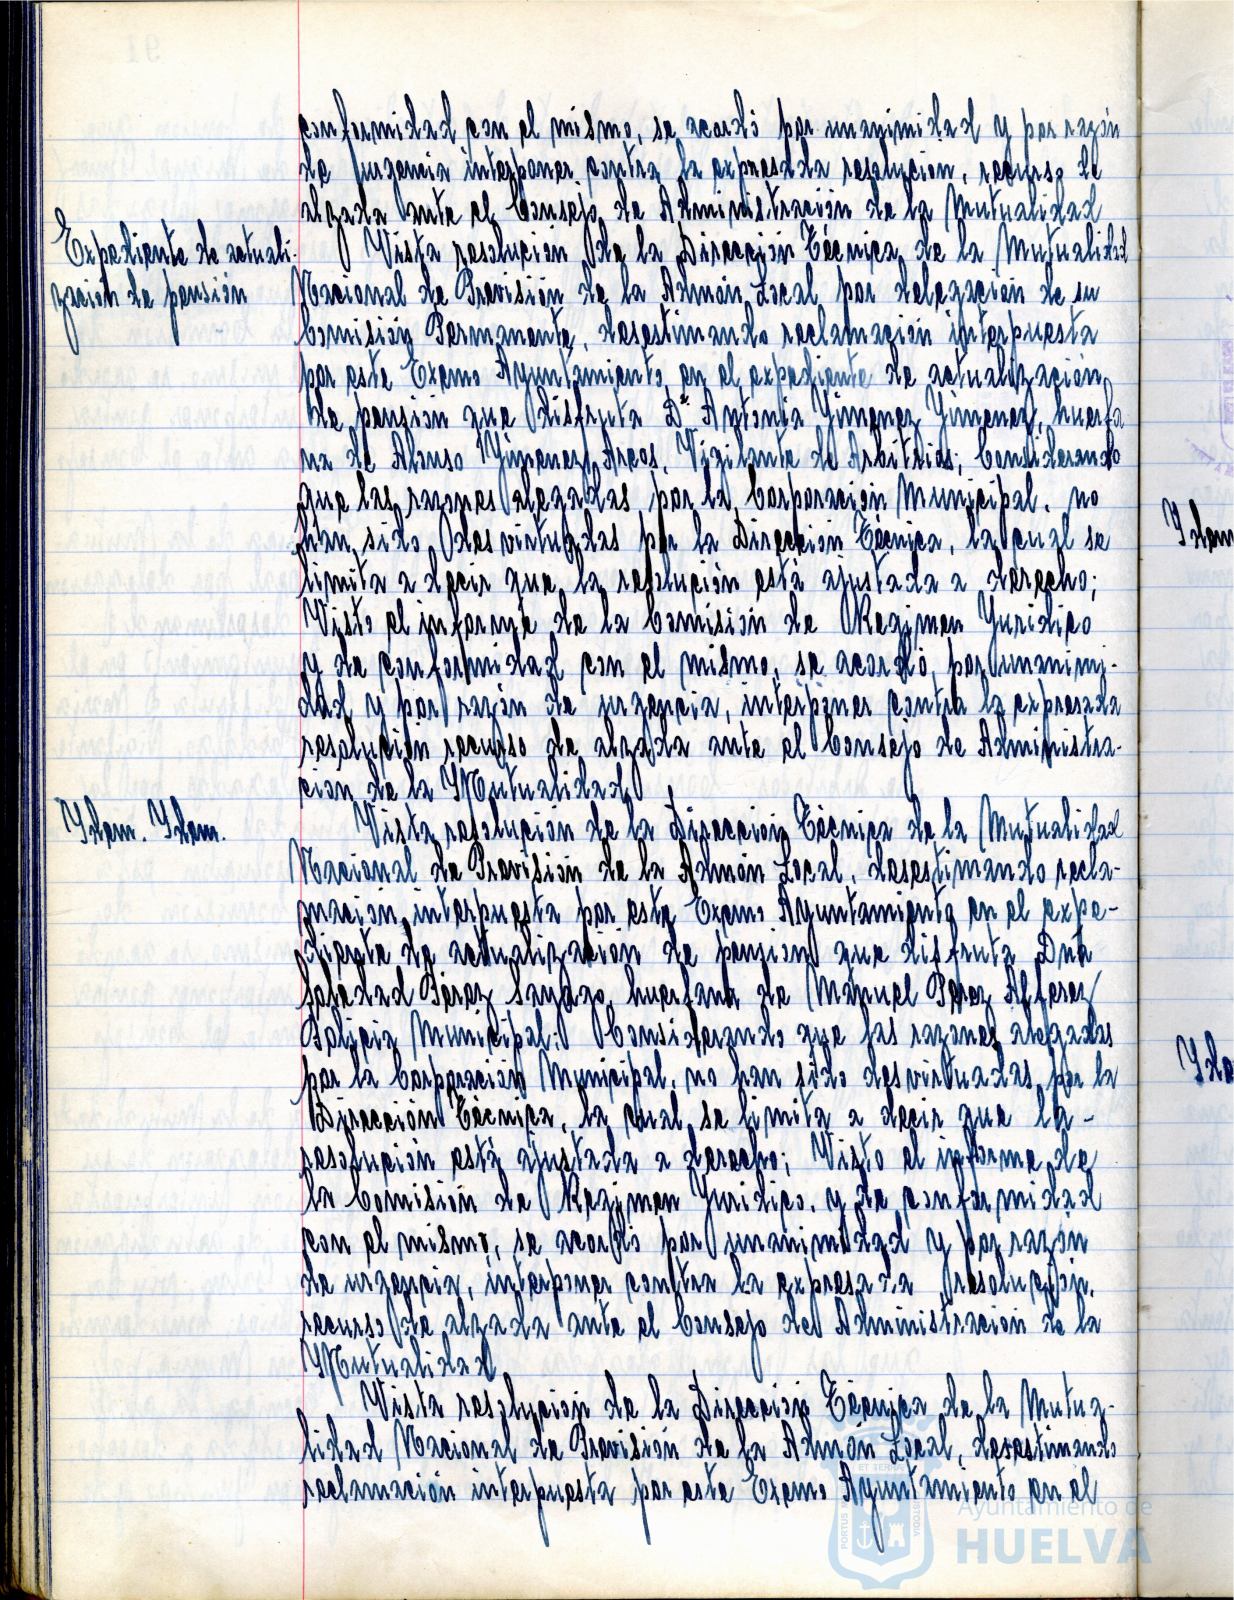 conformidad con el mismo, se acordó por unanimidad y por razón
de urgencia interponer contra la expresada resolución, recurso de
alzada ante el Consejo de Administración de la Mutualidad
Expediente de actuali-
zación de pensión
Vista resolución de la Dirección Técnica de la Mutualidad
Nacional de Previsión de la Admón Local por delegación de su
Comisión Permanente, desestimando reclamación interpuesta
por este Excmo Ayuntamiento en el expediente de actualización
de pensión que disfruta Dª Antonia Gimenez Gimenez, huerfa
na de Alonso Gimenez Arcos, Vigilante de Arbitrios; Considerando
que las razones alegadas por la Corporación Municipal, no
han sido desvirtuadas por la Dirección Técnica, la cual se
limita a decir que la resolución está ajustada a derecho;
Visto el informe de la Comisión de Regimen Juridico
y de conformidad con el mismo, se acordó, por unanimi-
dad y por razón de urgencia, interponer contra la expresada
resolución recurso de alzada ante el Consejo de Administra-
ción de la Mutualidad
Idem. Idem.
Vista resolución de la Dirección Técnica de la Mutualidad
Nacional de Previsión de la Admón Local, desestimando recla-
mación interpuesta por este Excmo Ayuntamiento en el expe-
diente de actualización de pensión que disfruta Dña
Soledad Pérez huerfana de Manuel Perez Alferez
Policia Municipal; Considerando que las razones alegadas
por la Corporación Municipal, no han sido desvirtuadas por la
Dirección Técnica, la cual se limita a decir que la-
resolución está ajustada a derecho; Visto el informe de
la Comisión de Regimen Juridico, y de conformidad
con el mismo, se acordó por unanimidad y por razón
de urgencia, interponer contra la expresada resolución,
recurso de alzada ante el Consejo de Administración de la
Mutualidad
Vista resolución de la Dirección Técnica de la Mutua-
lidad Nacional de Previsión de la Admón Local, desestimando
reclamación interpuesta por este Excmo Ayuntamiento en el
Ayuntamiento de
HUELVA